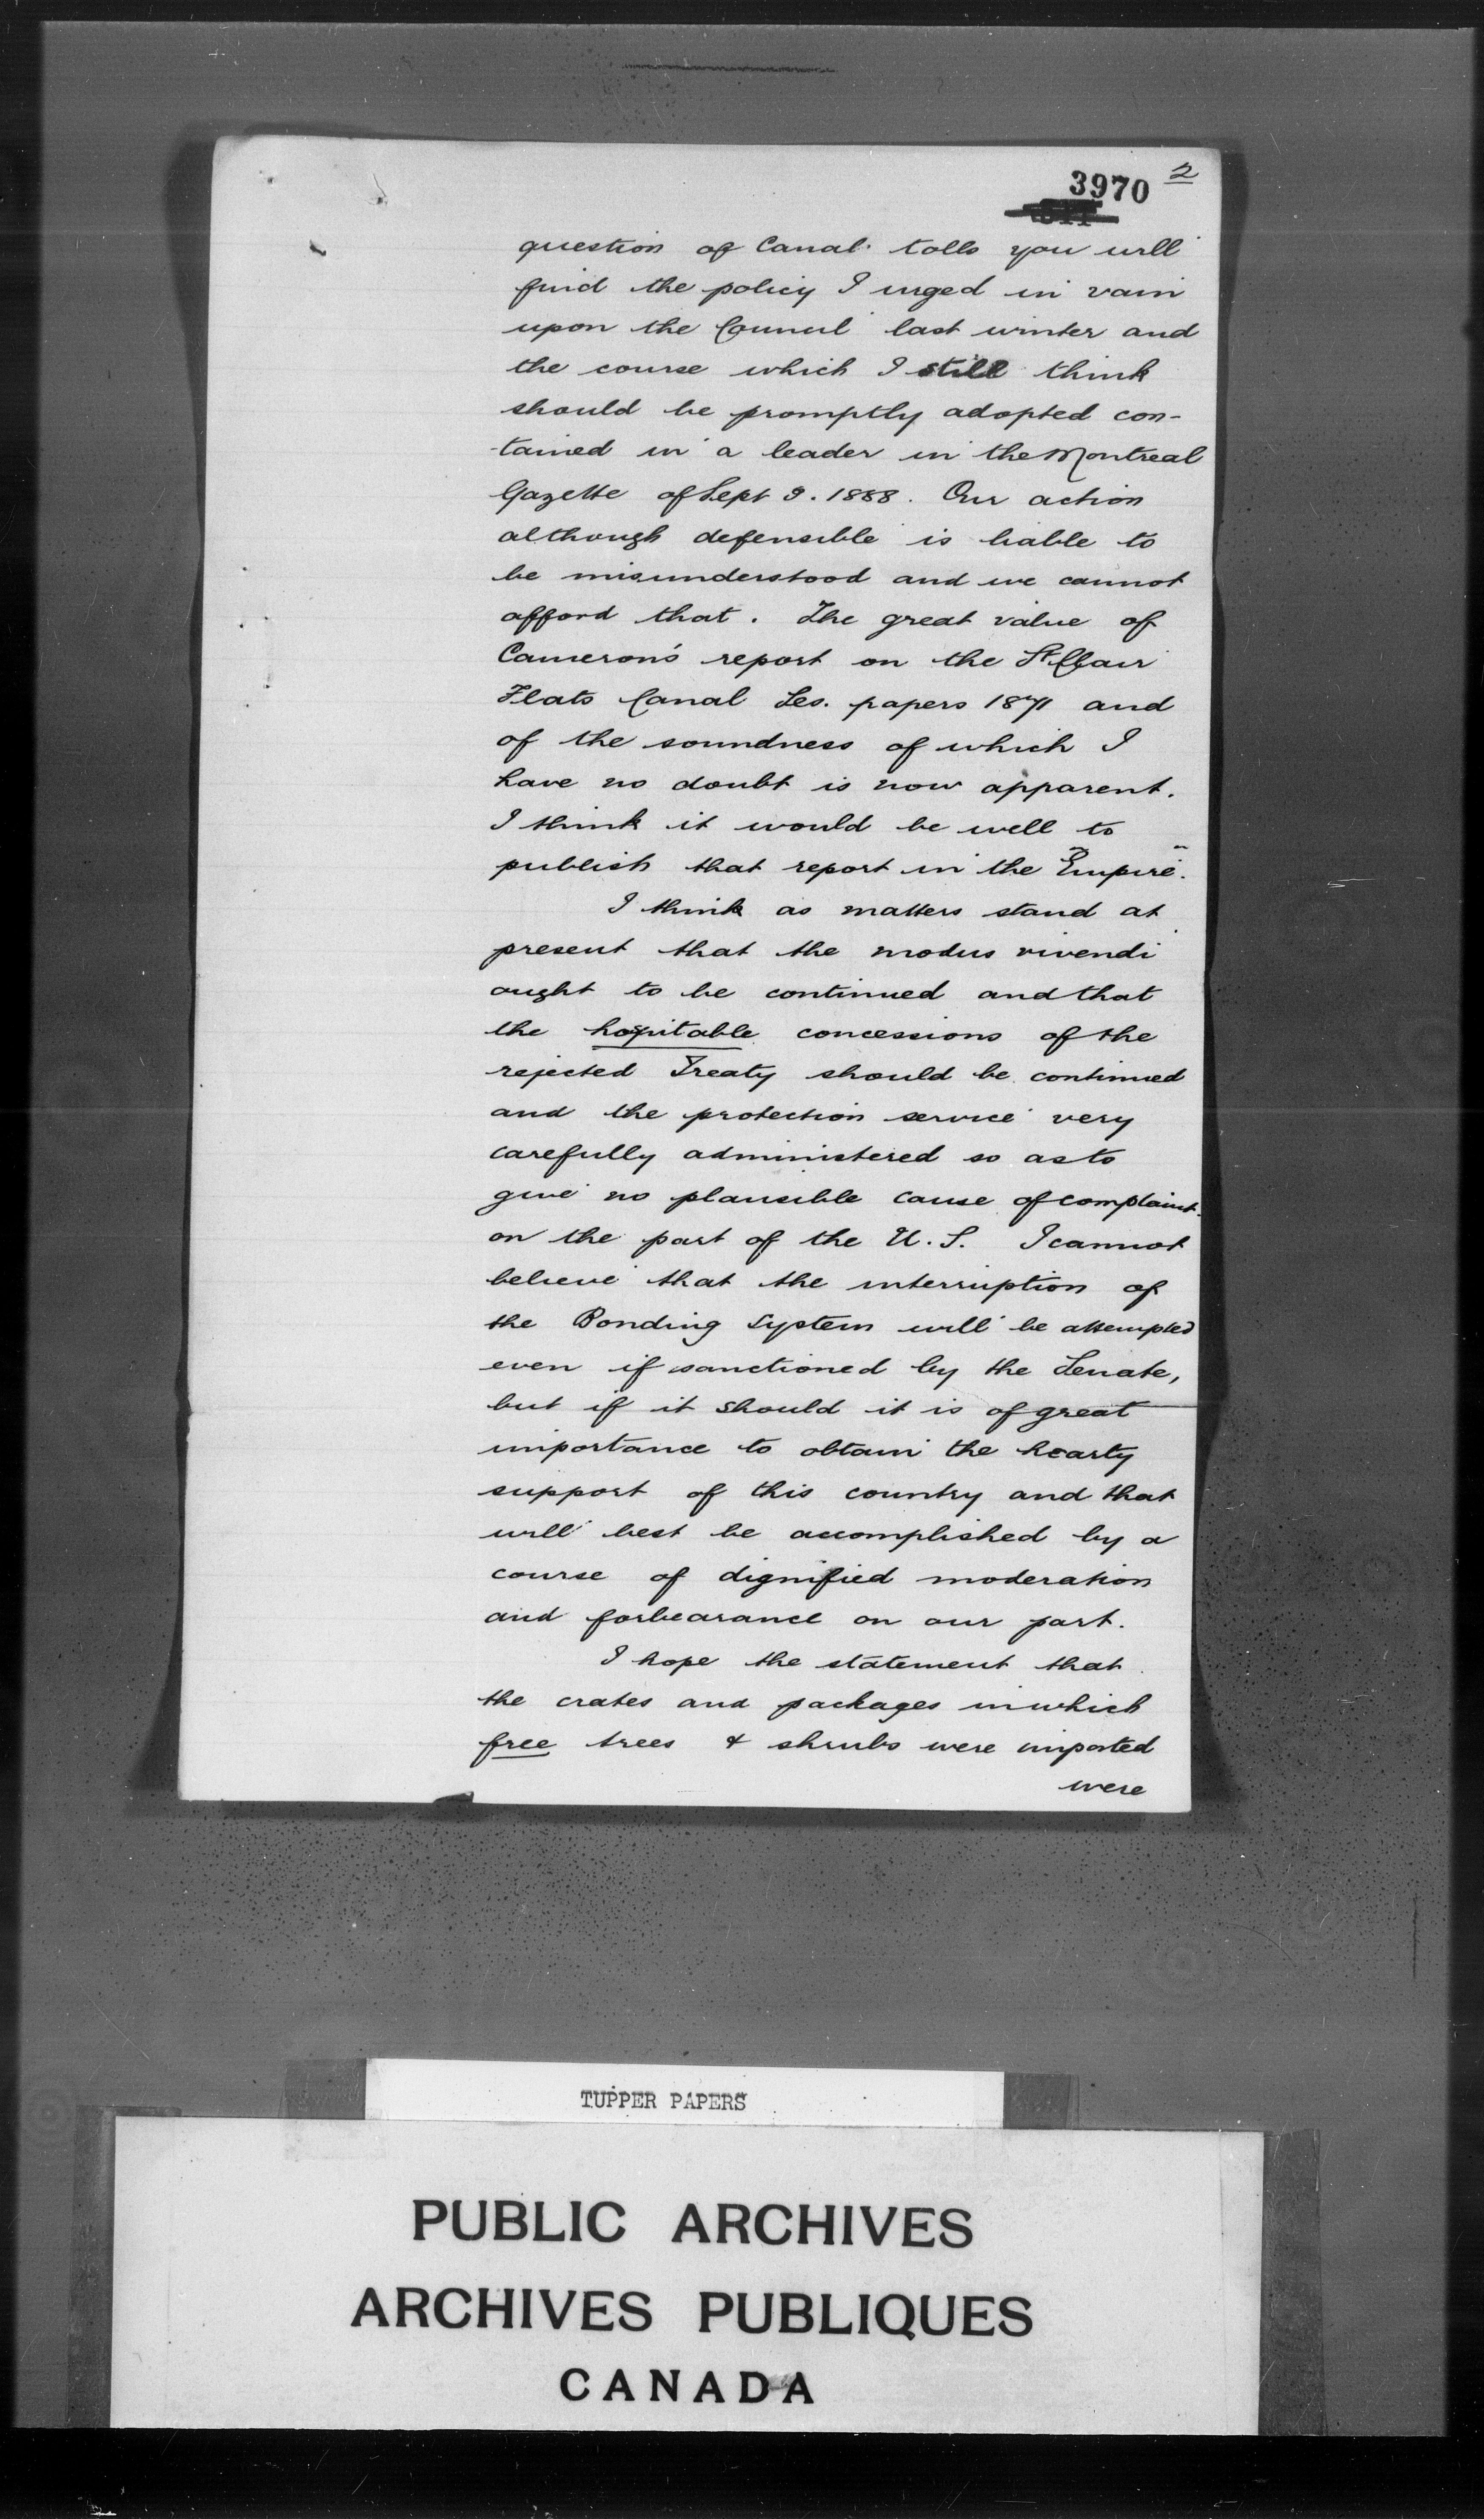 3970 2
question of Canal tolls you will
find the policy I urged in vain
upon the Council last winter and
the course which I still think
should be promptly adopted con-
tained in a leader in the Montreal
Gazette of Sept 3. 1888. Our action
although defensible is liable to
be misunderstood and we cannot
afford that. The great value of
Cameron's report on the St Clair
Flats Canal Ses. papers 1871 and
of the soundness of which I
have no doubt is now apparent.
I think it would be well to
publish that report in the "Empire".
I think as matters stand at
present that the modus vivendi
ought to be continued and that
the hospitable concessions of the
rejected Treaty should be continued
and the protection service very
carefully administered so as to
give no plausible cause of complaint
on the part of the U.S. I cannot
believe that the interruption of
the Bonding System will be attempted
even if sanctioned by the Senate,
but if it should it is of great
importance to obtain the hearty
support of this country and that
will best be accomplished by a
course of dignified moderation
and forbearance on our part.
I hope the statement that
the crates and packages in which
free trees & shrubs were imported
were
TUPPER PAPERS
PUBLIC ARCHIVES
ARCHIVES PUBLIQUES
CANADA